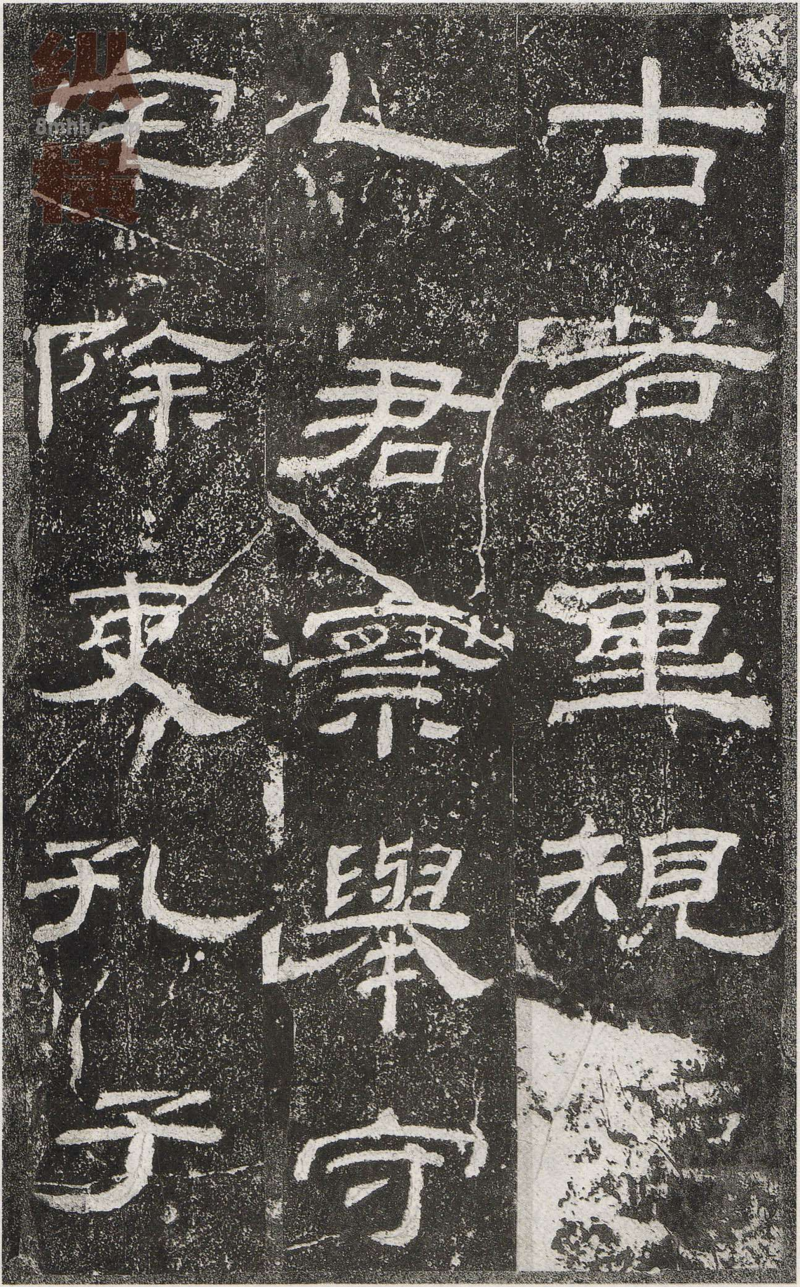 古若重規
乙君察舉守
宅除吏孔子
纵横